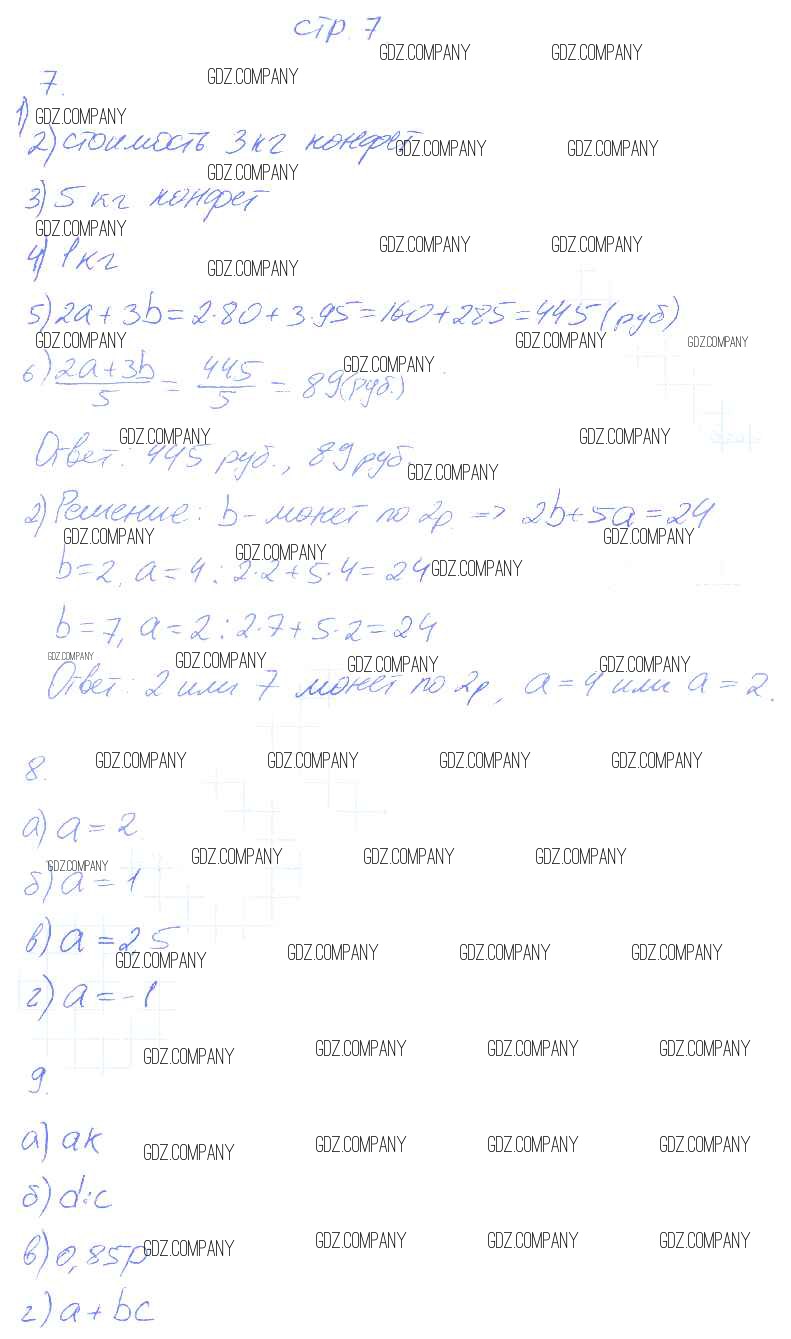 стр. 7
GDZ.COMPANY GDZ.COMPANY
7. GDZ.COMPANY
1) GDZ.COMPANY
2) стоимость 3 кг конфет GDZ.COMPANY GDZ.COMPANY
GDZ.COMPANY
3) 5 кг конфет
GDZ.COMPANY GDZ.COMPANY GDZ.COMPANY
4) 1 кг GDZ.COMPANY
5) 2a + 3b = 2·80 + 3·95 = 160 + 285 = 445 (руб)
GDZ.COMPANY GDZ.COMPANY GDZ.COMPANY
6) (2a+3b)/5 = 445/5 = 89 (руб.) GDZ.COMPANY
GDZ.COMPANY GDZ.COMPANY
Ответ: 445 руб., 89 руб. GDZ.COMPANY
2) Решение: b - монет по 2р. => 2b + 5a = 24
GDZ.COMPANY GDZ.COMPANY GDZ.COMPANY
b = 2, a = 4 : 2·2 + 5·4 = 24 GDZ.COMPANY
b = 7, a = 2 : 2·7 + 5·2 = 24
GDZ.COMPANY GDZ.COMPANY GDZ.COMPANY GDZ.COMPANY
Ответ: 2 или 7 монет по 2р, a = 4 или a = 2.
8. GDZ.COMPANY GDZ.COMPANY GDZ.COMPANY GDZ.COMPANY
а) a = 2
GDZ.COMPANY GDZ.COMPANY GDZ.COMPANY GDZ.COMPANY
б) a = 1
в) a = 2,5
GDZ.COMPANY GDZ.COMPANY GDZ.COMPANY GDZ.COMPANY
г) a = -1
GDZ.COMPANY GDZ.COMPANY GDZ.COMPANY GDZ.COMPANY
9.
а) ak GDZ.COMPANY GDZ.COMPANY GDZ.COMPANY GDZ.COMPANY
б) d:c
в) 0,85p GDZ.COMPANY GDZ.COMPANY GDZ.COMPANY GDZ.COMPANY
г) a + bc